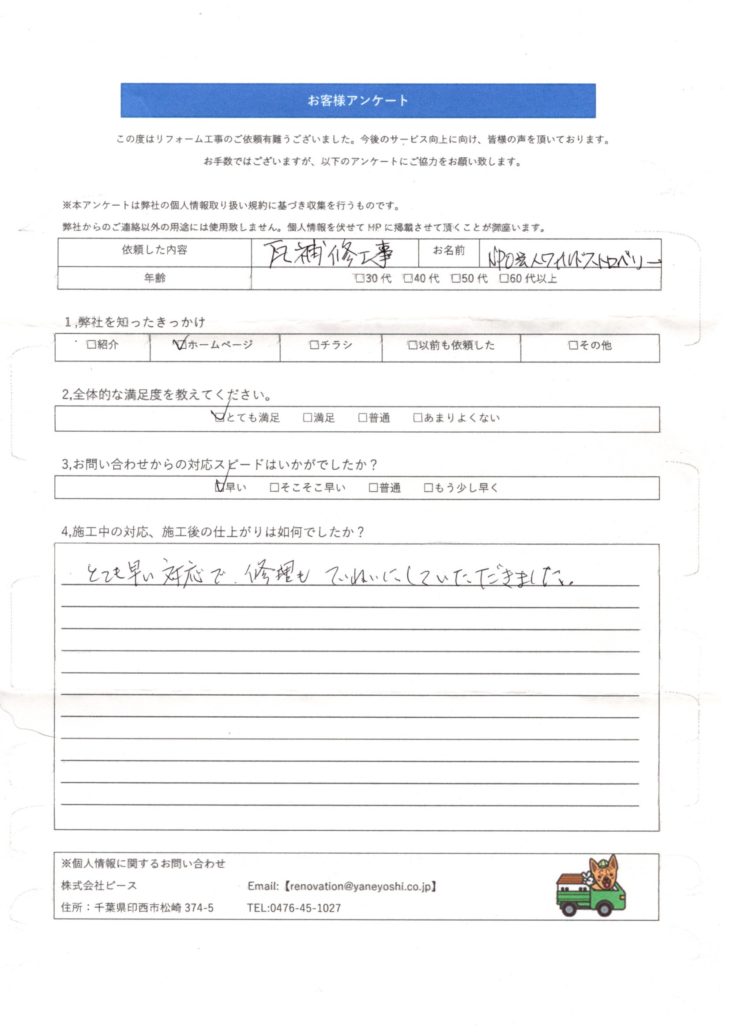 お客様アンケート
この度はリフォーム工事のご依頼有難うございました。今後のサービス向上に向け、皆様の声を頂いております。
お手数ではございますが、以下のアンケートにご協力をお願い致します。
※本アンケートは弊社の個人情報取り扱い規約に基づき収集を行うものです。
弊社からのご連絡以外の用途には使用致しません。個人情報を伏せて HP に掲載させて頂くことが御座います。
依頼した内容 瓦補修工事 お名前 NPO法人ワイルドストロベリー
年齢 □30 代 □40 代 □50 代 □60 代以上
1,弊社を知ったきっかけ
□紹介 ☑ホームページ □チラシ □以前も依頼した □その他
2,全体的な満足度を教えてください。
☑とても満足 □満足 □普通 □あまりよくない
3,お問い合わせからの対応スピードはいかがでしたか？
☑早い □そこそこ早い □普通 □もう少し早く
4,施工中の対応、施工後の仕上がりは如何でしたか？
とても早い対応で、修理もていねいにしていただきました。
※個人情報に関するお問い合わせ
株式会社ピース Email:【renovation@yaneyoshi.co.jp】
住所：千葉県印西市松崎 374-5 TEL:0476-45-1027